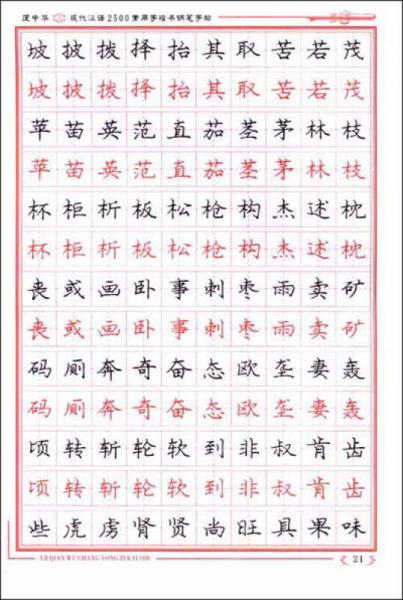 庞中华 现代汉语2500常用字楷书钢笔字帖
坡披拨择抬其取苦若茂
坡披拨择抬其取苦若茂
苹苗英范直茄茎茅林枝
苹苗英范直茄茎茅林枝
杯柜析板松枪构杰述枕
杯柜析板松枪构杰述枕
丧或画卧事刺枣雨卖矿
丧或画卧事刺枣雨卖矿
码厕奔奇奋态欧垄妻轰
码厕奔奇奋态欧垄妻轰
顷转斩轮软到非叔肯齿
顷转斩轮软到非叔肯齿
些虎虏肾贤尚旺具果味
21